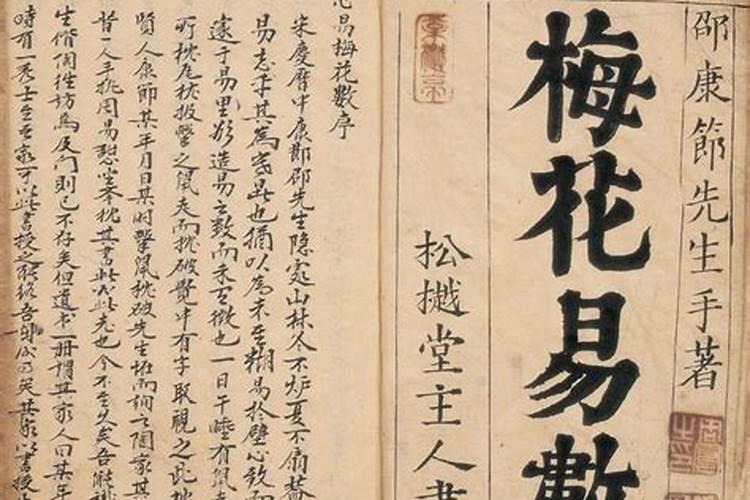 邵康節先生手著
梅花易數
松樾堂主人書
心易梅花數序
宋慶曆中康節邵先生隱處山林冬不炉夏不扇蓋
易忘乎其為寒暑也猶以為未至糊易於壁心致而
遂于易里欲造易之數而未有徵也一日午睡有鼠走
所枕瓦枕投擊之鼠走而枕破覺中有字取視之此枕
賢人康節某年月日某時擊鼠枕破先生怪而詢之陶家其
昔一人手执周易憩坐举枕其書必此老也今不至久矣吾能識
生偕陶往訪焉及門則已不存矣但遺書一冊謂其家人曰某年
時有一秀士至吾家可以此書授之能終吾身矣其家以書授